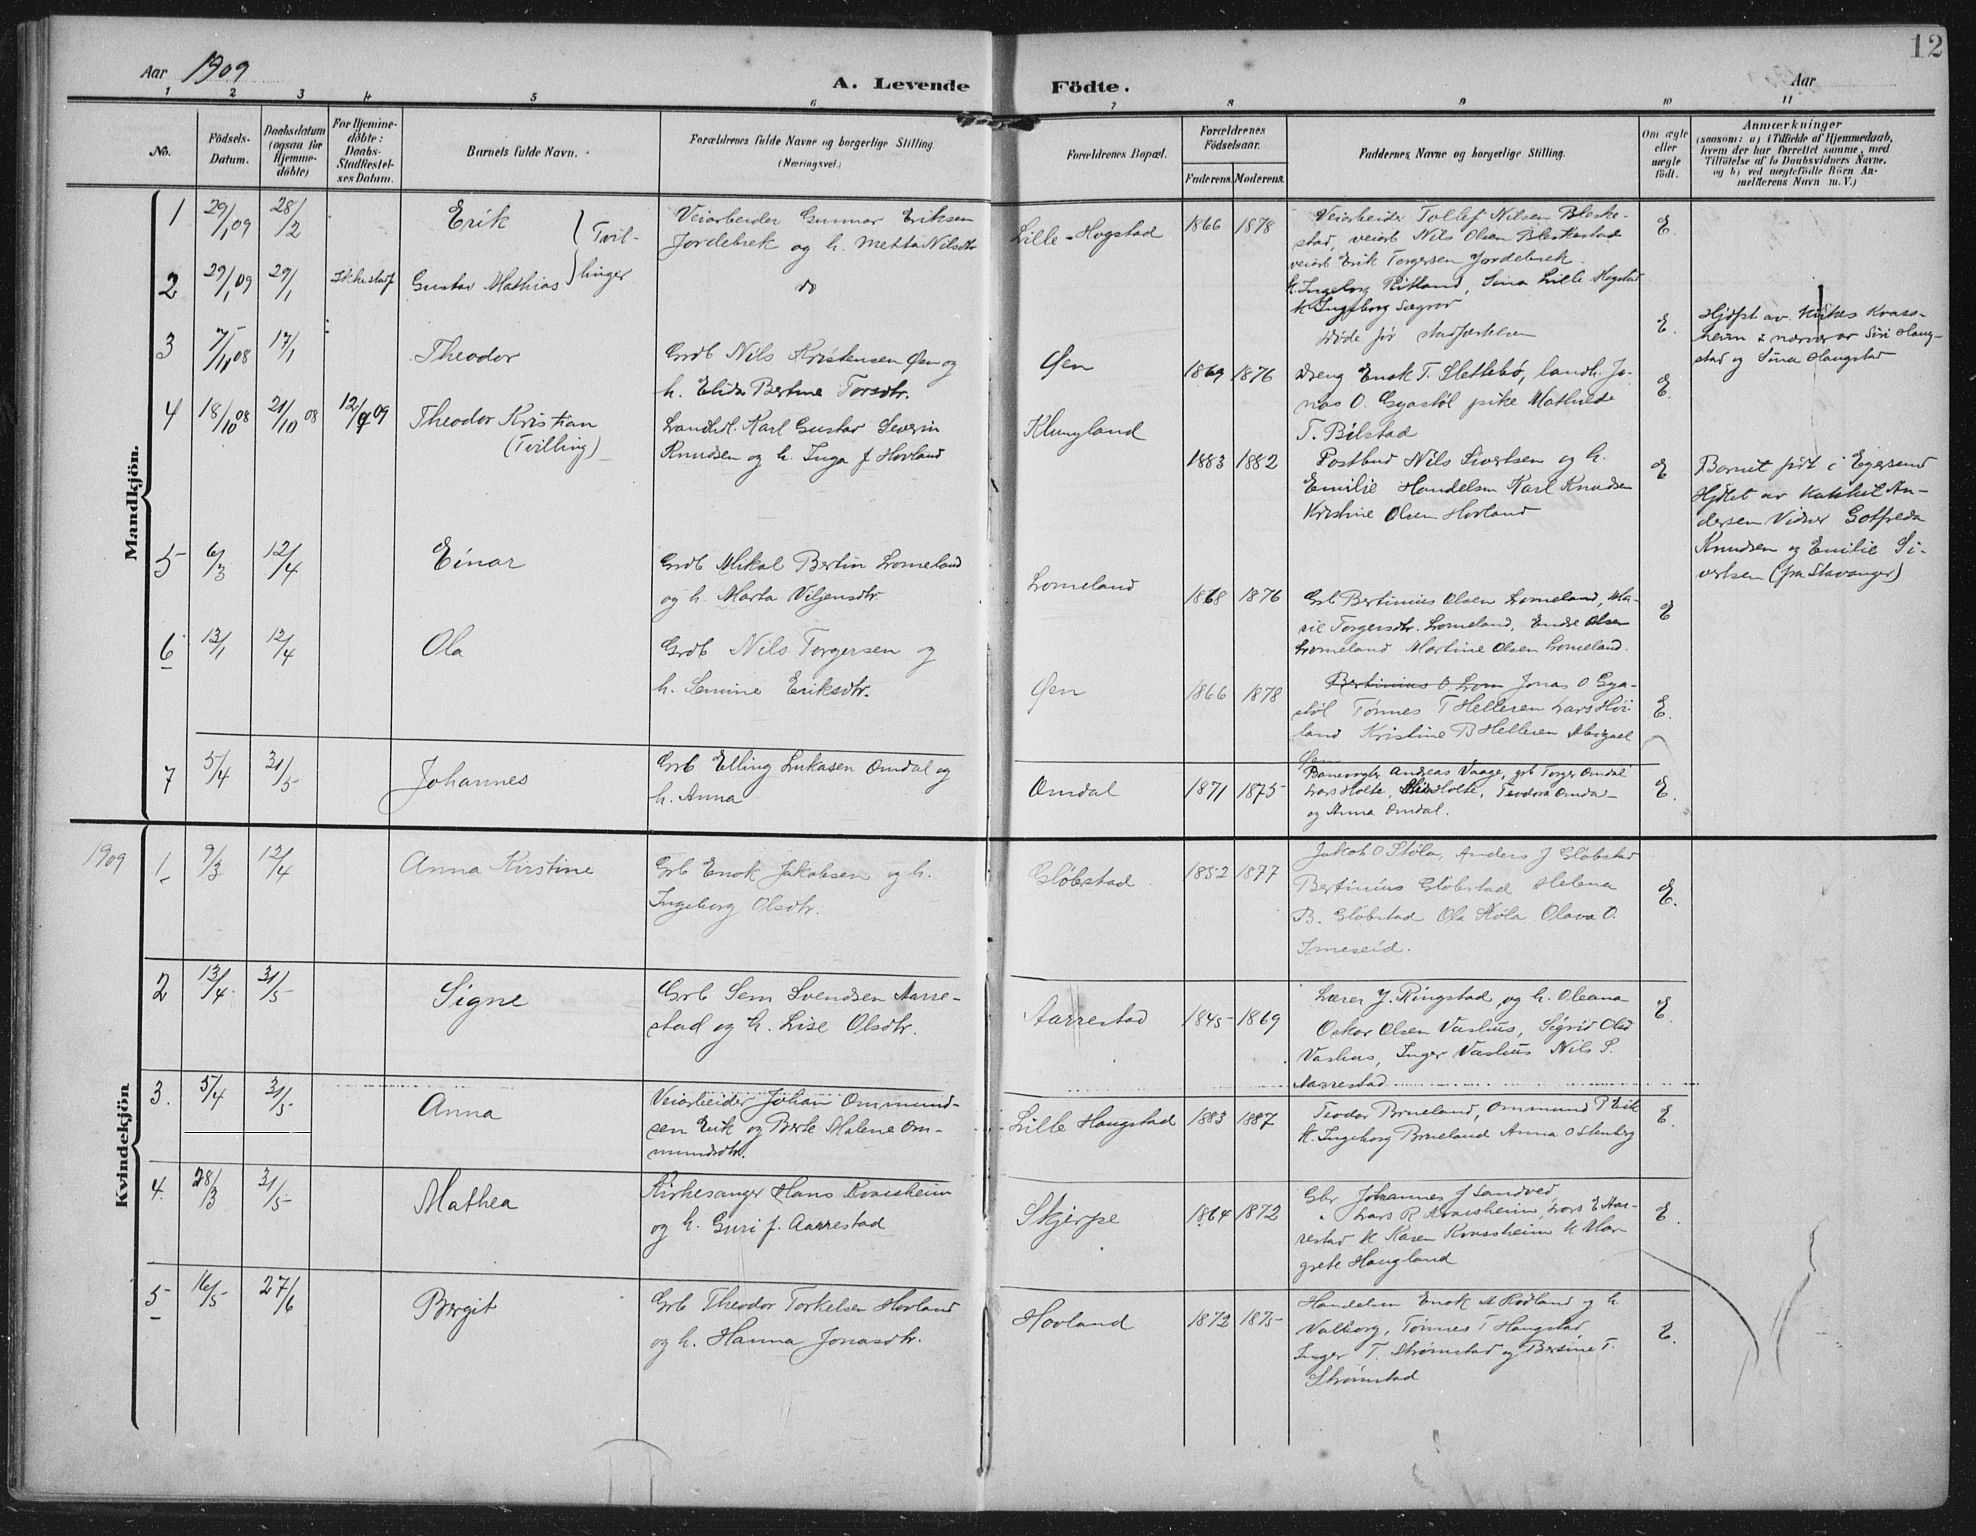 12
Aar 1909
A. Levende Födte.
Aar
1 2 3 4 5 6 7 8 9 10 11
No.
Födsels-
Datum.
Daabsdatum
(ogsaa for
Hjemme-
döbte)
For Hjemme-
döbte:
Daabs-
Stadfæstel-
ses Datum.
Barnets fulde Navn.
Forældrenes fulde Navne og borgerlige Stilling.
(Næringsvei.)
Forældrenes Bopæl.
Forældrenes
Födselsaar.
Faderens. Moderens.
Faddernes Navne og borgerlige Stilling.
Om ægte
eller
uægte
födt.
Anmærkninger
(saasom: a) i Tilfælde af Hjemmedaab,
hvem der har forrettet samme, med
Tilföielse af to Daabsvidners Navne,
og b) ved uægtefödte Börn An-
melderens Navn m. V.)
Mandkjön.
1 29/1 09 28/2 Erik } Tvil-
Veiarbeider Gunnar Eriksen
Jordebrek og h. Metta Nilsdtr
Lille-Hogstad 1866 1878
Veiarbeider Tollef Nilsen Bleske-
stad, veiarb Nils Olsen Bleskestad
veiarb Erik Torgersen Jordebrek.
K. Ingeborg Ritland, Sina Lille Hogstad
K Ingeborg Sægrov
E.
2 29/1 09 29/1 Ikke stadf Gustav Mathias } linger
do
Døde før stadfæstelsen
E.
Hjdøpt av Kirkes Kvass-
heim i nærvær av Siri Haug-
stad og Sina Haugstad
3 7/11 08 17/1 Theodor
Grdb Nils Kristensen Øen og
h. Elida Bertine Torsdtr.
Øen 1869 1876
Dreng Enok T. Slettebø, landh. Jo-
nas O. Gyastøl pike Mathilde
T. Bilstad
E.
4 18/10 08 21/10 08 12/4 09 Theodor Kristian
(Tvilling)
Landhdl. Karl Gustav Severin
Knudsen og h. Inga f. Hovland
Klungland
1883 1882
Postbud Nils Sivertsen og h.
Emilie Handelsm Karl Knudsen
Kirstine Olsen Hovland
E
Barnet født i Egersund
Hjdøbt av Katekет An-
dersen Vidner Gotfreda
Knudsen og Emilie Si-
vertsen (fra Stavanger)
5 6/3 12/4 Einar
Grdb Mikal Bertin Lomeland
og h. Marta Viljensdtr.
Lomeland
1868 1876
Grb Bertinius Olsen Lomeland, Ma-
rie Torgersdtr. Lomeland, Endre Olsen
Lomeland Martine Olsen Lomeland.
E
6 13/1 12/4 Ola
Grdb Nils Torgersen og
h. Semine Eriksdtr.
Øen 1866 1878
Bertinius O Lom Jonas O Gya-
støl Tønnes T Helleren Lars Høi
land Kristine B Helleren Abigael
Øen
E.
7 5/4 31/5 Johannes
Grb Elling Lukasen Omdal og
h. Anna
Omdal 1871 1875
Banevogter Andreas Vaage, grb Torger Omdal
Lars Holte, Holte, Teodora Omda-
og Anna Omdal.
E.
Kvindekjön
1909
1 9/3 12/4 Anna Kirstine
Grb Enok Jakobsen og h.
Ingeborg Olsdtr.
Gløbstad 1852 1877
Jakob O Støla, Anders J Gløbstad
Bertinius Gløbstad Helena
B. Gløbstad Ola Støla Olava O.
Immeseid.
E.
2 13/4 31/5 Signe
Grb Sem Svendsen Aarre-
stad og h. Lise Olsdtr.
Aarrestad 1845 1869
Lærer J. Ringstad og h. Oleana
Oskar Olsen Vashus, Sigrid Olsd
Vashus, Inger Vashus Nils S.
Aarrestad
E.
3. 5/4 31/5 Anna
Veiarbeider Johan Ommund-
sen Erik og Berte Malene Om-
mundsdtr.
Lille Haugstad 1883 1887
Teodor Brueland, Ommund P Eik
K. Ingeborg Brueland Anna O Stenberg
E.
4. 28/3 31/5 Mathea
Kirkesanger Hans Kvassheim
og h. Guri f. Aarrestad
Skjerpe 1864 1872
Gbr Johannes J Sandved
" Lars R Kvassheim, Lars E Aar-
restad K Karen Kvassheim K Mar-
grete Haugland
E.
5 16/5 27/6 Bergit
Grb Theodor Torkelsen Hovland
og h. Hanna Jonasdtr.
Hovland 1872 1875
Handelsm Enok A Rodland og h.
Valborg, Tønnes T Haugstad
Inger T. Strømstad og Bersine T.
Strømstad
E.